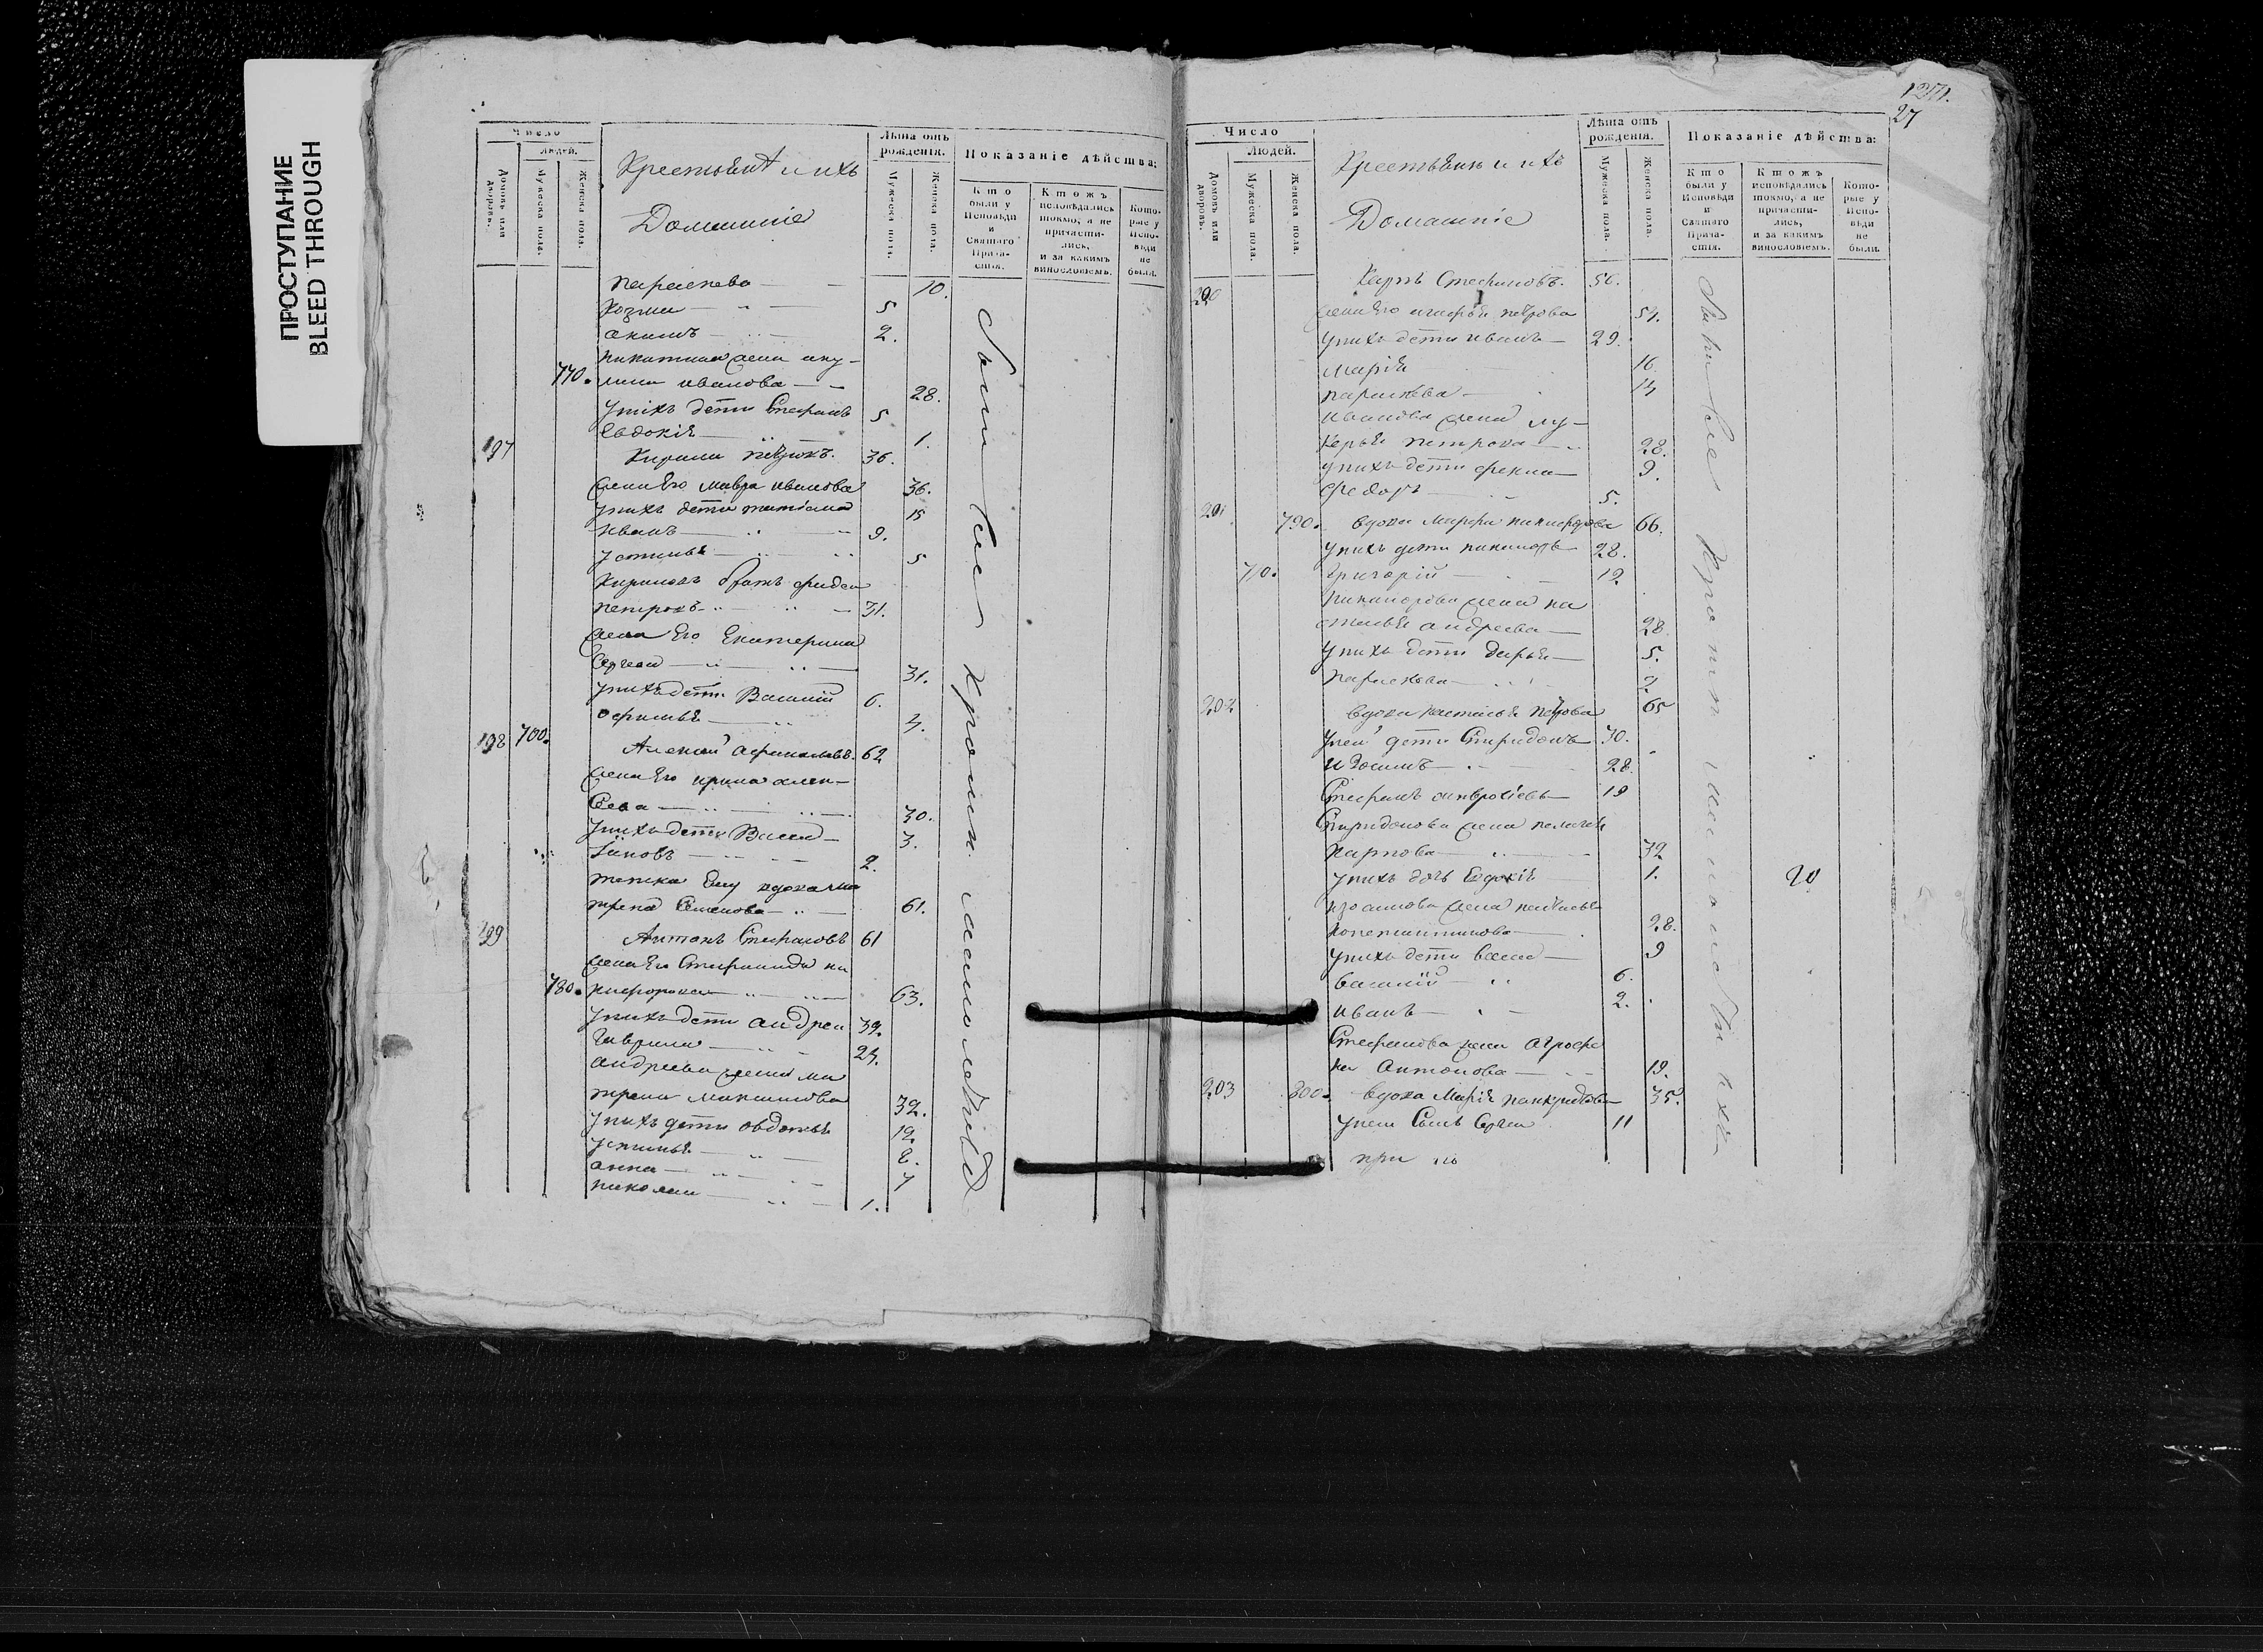 ПРОСТУПАНИЕ
BLEED THROUGH
Число
Людей.
Домовъ или дворовъ.
Мужеска пола.
Женска пола.
Крестьяне и ихъ
Домашніе
Лѣта отъ рожденія.
Мужеска пола.
Женска пола.
Показаніе дѣйства:
Кто были у Исповѣди и Святаго Прича- стія.
Ктожъ исповѣдались токмо, а не причасти- лись, и за какимъ винословіемъ.
Кото- рые у Испо- вѣди не были.
параскева 10.
Козма 5
акимъ 2.
никитина жена аку-
770. лина иванова 28.
у нихъ дети Стефанъ 5
Евдокія 1.
197 Кирила петровъ. 36.
жена Его мавра иванова 36.
у нихъ дети татіана 15
иванъ 9.
устинья 5
Кириловъ братъ
петровъ 31.
жена Его Екатерина
Сергеева 31.
у нихъ дети Василій 6.
4.
198 700. Алексей 62
жена Его ирина алек-
сеева 30.
у нихъ дети 3.
Іаковъ 2.
тетка Ему вдова ма
трена Семенова 61.
199 Антонъ Стефановъ 61
жена Его Стефанида ни
780. кифорова 63.
у нихъ дети андреи 39.
гаврила 24.
андреева жена ма
трена максимова 32.
у нихъ дети овдотья 12.
устинья 8.
анна 4
николаи 1.
были все кроми малолетнихъ
27
Число
Людей.
Домовъ или дворовъ.
Мужеска пола.
Женска пола.
Крестьяне и ихъ
Домашніе
Лѣта отъ рожденія.
Мужеска пола.
Женска пола.
Показаніе дѣйства:
Кто были у Исповѣди и Святаго Прича- стія.
Ктожъ исповѣдались токмо, а не причасти- лись, и за какимъ винословіемъ.
Кото- рые у Испо- вѣди не были.
200 Карпъ Стефановъ. 56.
жена Его петрова 54.
у нихъ дети иванъ 29.
марія 16.
параскева 14
иванова жена лу-
керья петрова 28.
у нихъ дети фекла 9.
федоръ 5.
201 790. вдова марфа никифорова 66.
у нихъ дети никаноръ 28.
710. Григорій 12.
никанорова жена на
сталья андреева 28.
у нихъ дети дарья 5.
параскева 2.
202 вдова наталья петрова 65
у неи дети Спиридонъ 30.
изосимъ 28.
Стефанъ 19
Спиридонова жена пелагея
Карпова 32
у нихъ дочь Евдокія 1.
изосимова жена наталья
Константинова 28.
у нихъ дети 9
василій 6.
иванъ 2.
Стефанова жена
на Антонова 19.
203 800. вдова Марія 35.
у неи Сынъ Сергеи 11
20